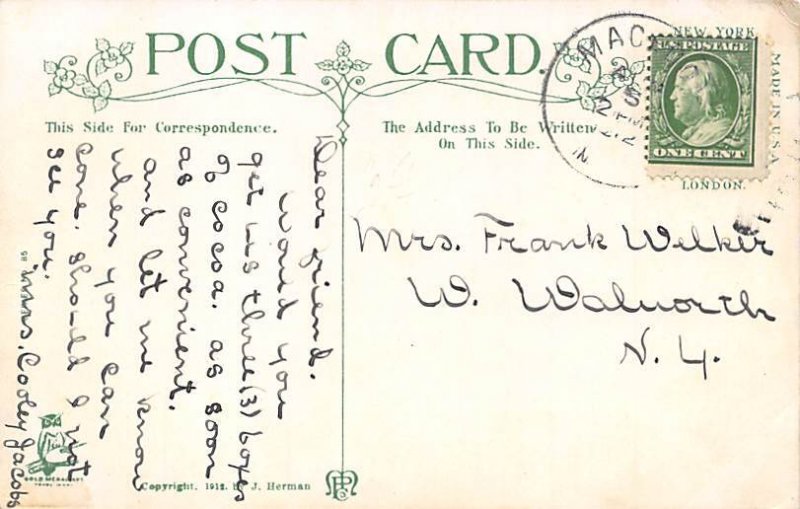 POST CARD.
This Side For Correspondence.
The Address To Be Written
On This Side.
NEW YORK
U.S. POSTAGE
ONE CENT
MADE IN U.S.A.
LONDON.
MAC
Dear friend.
Would you
get us three (3) boxes
of cocoa. as soon
as convenient.
and let me know
when you can
come. should I not
see you.
Mrs. Cooley Jacobs
Mrs. Frank Welker
W. Walworth
N. Y.
GOLD MEDAL ART
Copyright. 1912. by J. Herman